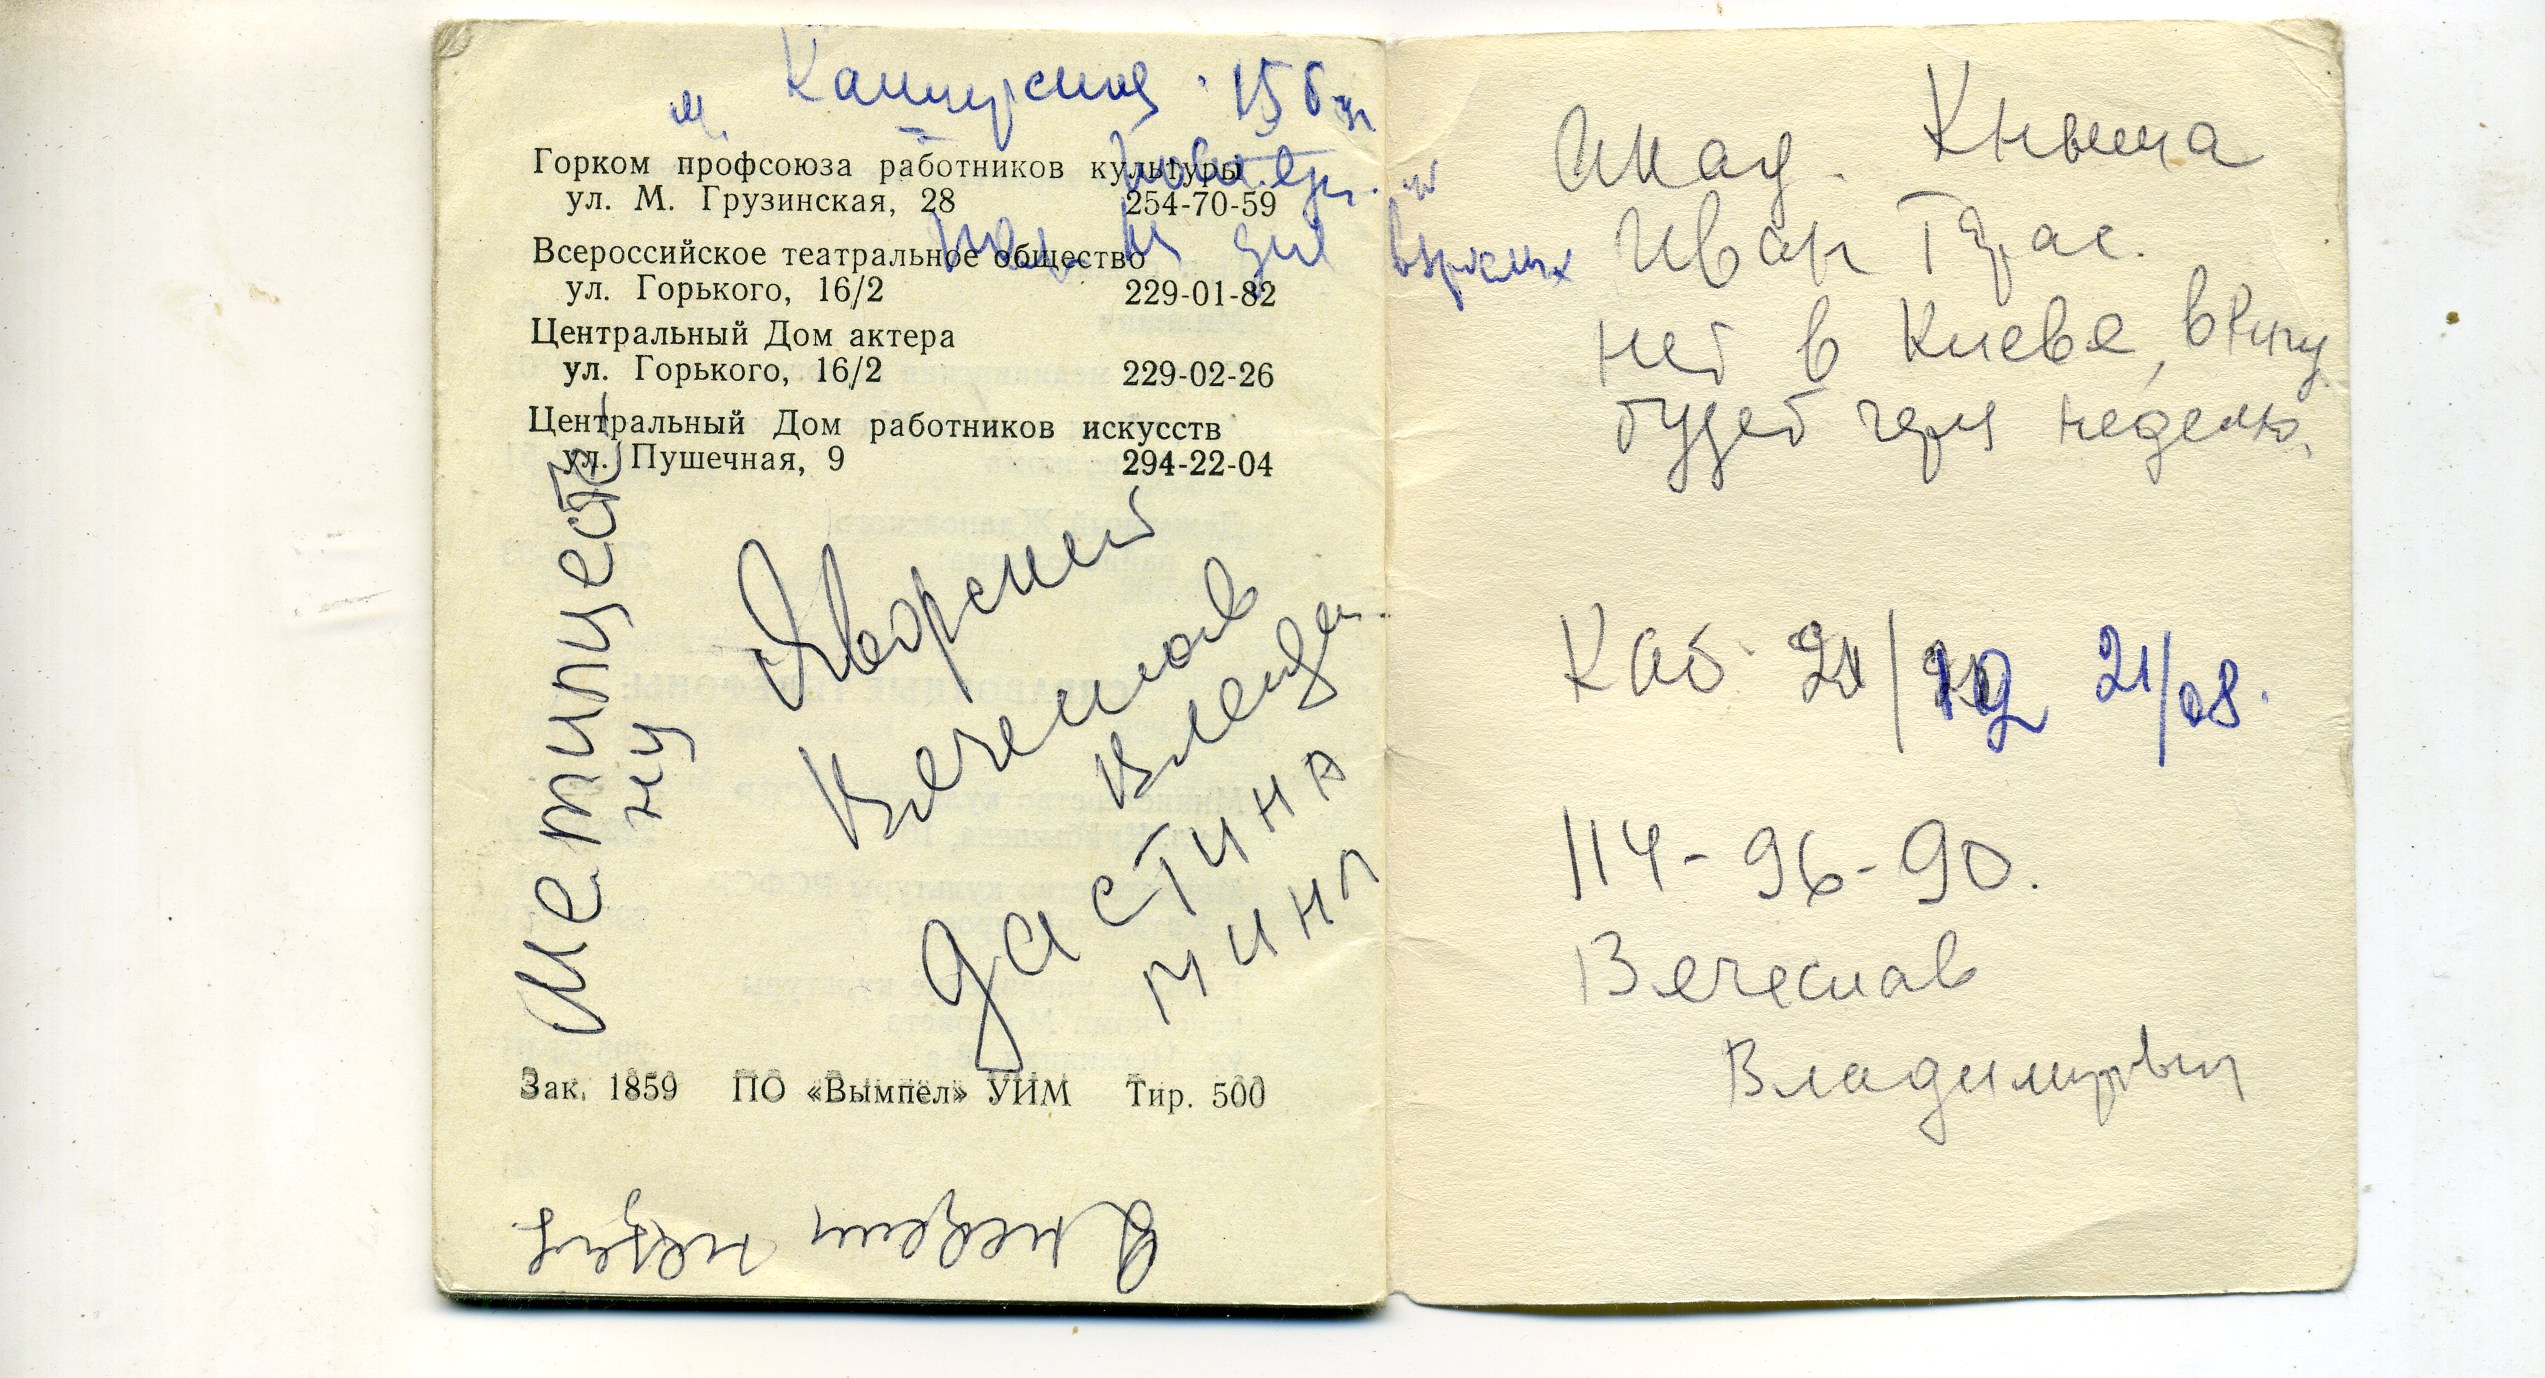 м. Каширская 15
Горком профсоюза работников культуры
ул. М. Грузинская, 28 254-70-59
Всероссийское театральное общество
ул. Горького, 16/2 229-01-82
для взрослых
Центральный Дом актера
ул. Горького, 16/2 229-02-26
Центральный Дом работников искусств
ул. Пушечная, 9 294-22-04
ну
Яворский
Вячеслав
Владим.
Дастина
Зак. 1859 ПО «Вымпел» УИМ Тир. 500
Акад. Кныша
Иван Тарас.
нет в Киеве, в Ригу
будет через неделю.
Каб. 21/ 21/08.
114-96-90.
Вячеслав
Владимирович